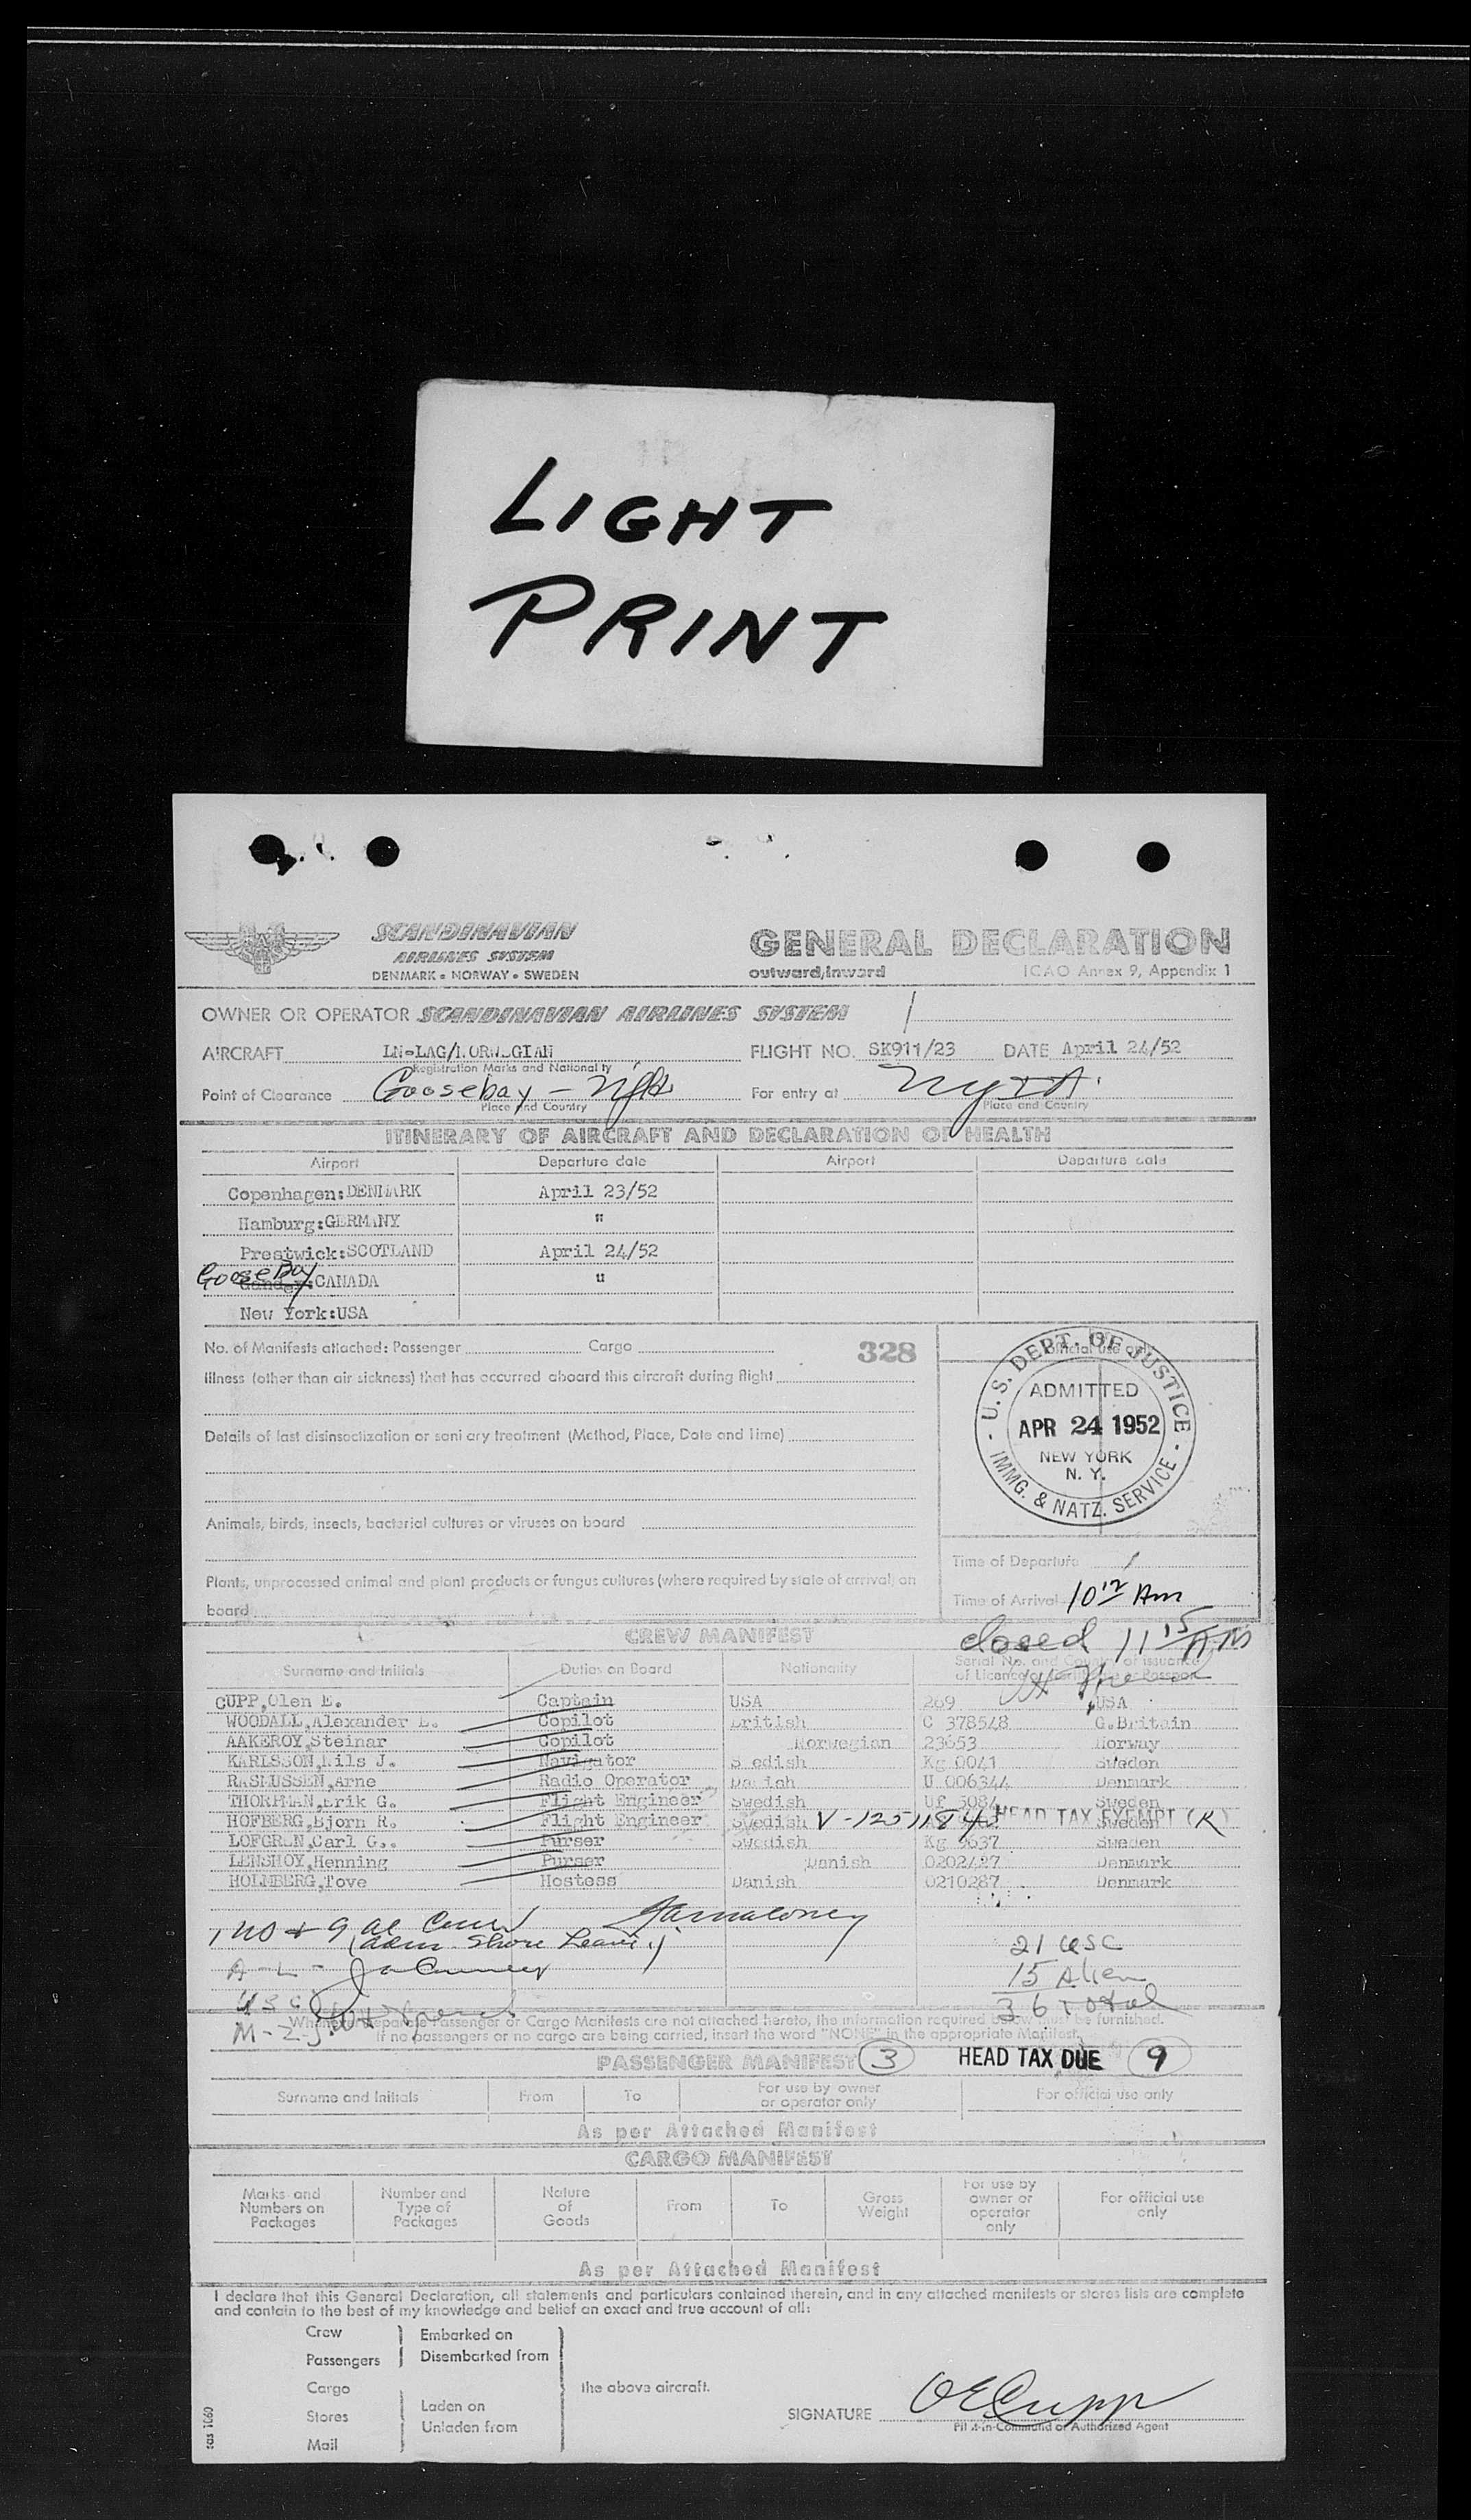 LIGHT
PRINT
SCANDINAVIAN
AIRLINES SYSTEM
DENMARK • NORWAY • SWEDEN
GENERAL DECLARATION
outward/inward
ICAO Annex 9, Appendix 1
OWNER OR OPERATOR SCANDINAVIAN AIRLINES SYSTEM
AIRCRAFT LN-LAG/NORWEGIAN FLIGHT NO. SK911/23 DATE April 24/52
Registration Marks and Nationality
Point of Clearance Goosebay - For entry at
Place and Country Place and Country
ITINERARY OF AIRCRAFT AND DECLARATION OF HEALTH
Airport Departure date Airport Departure date
Copenhagen:DENMARK April 23/52
Hamburg:GERMANY "
Prestwick:SCOTLAND April 24/52
Goose Bay Gander:CANADA "
New York:USA
No. of Manifests attached: Passenger Cargo 328
official use only
Illness (other than air sickness) that has occurred aboard this aircraft during flight
Details of last disinsectization or sanitary treatment (Method, Place, Date and Time)
U.S. DEPT. OF JUSTICE
ADMITTED
APR 24 1952
NEW YORK
N. Y.
IMMG. & NATZ. SERVICE
Animals, birds, insects, bacterial cultures or viruses on board
Time of Departure
Plants, unprocessed animal and plant products or fungus cultures (where required by state of arrival) on
board
Time of Arrival 10 12 Am
CREW MANIFEST
closed 11 15 AM
Surname and Initials Duties on Board Nationality Serial No. and Country of issuance
of Licence or Certificate or Passport
CUPP,Olen E. Captain USA 269 USA
WOODALL,Alexander L. Copilot British C 378548 G.Britain
AAKEROY,Steinar Copilot Norwegian 23653 Norway
KARLSSON,Nils J. Navigator Swedish Kg 0041 Sweden
RASMUSSEN,Arne Radio Operator Danish U 006344 Denmark
THORMAN,Erik G. Flight Engineer Swedish Uf 5084 Sweden
HOFBERG,Bjorn R. Flight Engineer Swedish V-1251184 HEAD TAX EXEMPT (K) Sweden
LOFGREN,Carl G.. Purser Swedish Kg 9637 Sweden
LENSHOY,Henning Purser Danish 0202427 Denmark
HOLMBERG,Tove Hostess Danish 0210287 Denmark
(adm. Shore Leave)
A-L-
21 USC
15 Alien
36 Total
USC
M-2-3
Whenever separate Passenger or Cargo Manifests are not attached hereto, the information required below must be furnished.
If no passengers or no cargo are being carried, insert the word "NONE" in the appropriate Manifest.
PASSENGER MANIFEST 3 HEAD TAX DUE 9
Surname and Initials From To For use by owner
or operator only For official use only
As per Attached Manifest
CARGO MANIFEST
Marks and
Numbers on
Packages
Number and
Type of
Packages
Nature
of
Goods
From To
Gross
Weight
For use by
owner or
operator
only
For official use
only
As per Attached Manifest
I declare that this General Declaration, all statements and particulars contained therein, and in any attached manifests or stores lists are complete
and contain to the best of my knowledge and belief an exact and true account of all:
Crew
Passengers
Cargo
Stores
Mail
Embarked on
Disembarked from
Laden on
Unladen from
the above aircraft.
SIGNATURE OE Cupp
Pilot-in-Command or Authorized Agent
sas 1060